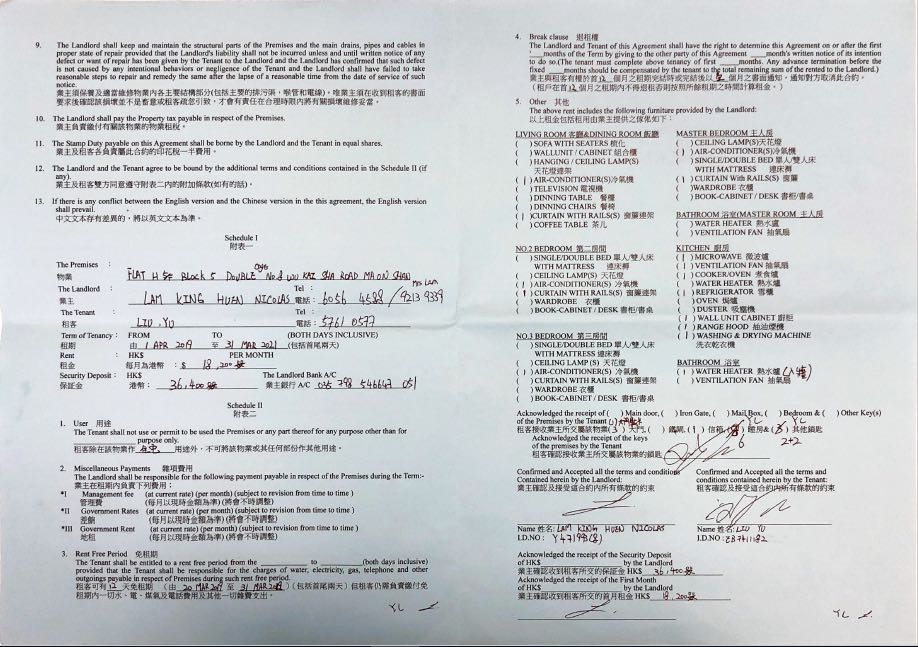 9. The Landlord shall keep and maintain the structural parts of the Premises and the main drains, pipes and cables in
proper state of repair provided that the Landlord's liability shall not be incurred unless and until written notice of any
defect or want of repair has been given by the Tenant to the Landlord and the Landlord has confirmed that such defect
is not caused by any intentional behaviors or negligence of the Tenant and the Landlord shall have failed to take
reasonable steps to repair and remedy the same after the lapse of a reasonable time from the date of service of such
notice.
業主須保養及適當維修物業內各主要結構部分(包括主要的排污渠，喉管和電線)。唯業主須在收到租客的書面
要求後確認該損壞並不是蓄意或租客疏忽引致，才會有責任在合理時限內將有關損壞維修妥當。
10. The Landlord shall pay the Property tax payable in respect of the Premises.
業主負責繳付有關該物業的物業租稅。
11. The Stamp Duty payable on this Agreement shall be borne by the Landlord and the Tenant in equal shares.
業主及租客各負責屬此合約的印花稅一半費用。
12. The Landlord and the Tenant agree to be bound by the additional terms and conditions contained in the Schedule II (if
any).
業主及租客雙方同意遵守附表二內的附加條款(如有的話)。
13. If there is any conflict between the English version and the Chinese version in this agreement, the English version
shall prevail.
中文文本存有差異的，將以英文文本為準。
Schedule I
附表一
The Premises :
物業 FLAT H 5/F BLOCK 5 DOUBLE COVE No.8 WU KAI SHA ROAD MA ON SHAN
The Landlord : Tel : MRS LAM
業主 LAM KING HUEN NICOLAS 電話: 6056 4588 / 9213 9339
The Tenant Tel :
租客 LIU, YU 電話: 5761 0577
Term of Tenancy: FROM TO (BOTH DAYS INCLUSIVE)
租期 由 1 APR 2019 至 31 MAR 2021 (包括首尾兩天)
Rent : HK$ PER MONTH
租金 每月為港幣 : $ 18,200
Security Deposit : HK$ The Landlord Bank A/C
保證金 港幣 : 36,400 業主銀行 A/C 035 798 546647 051
Schedule II
附表二
1. User 用途
The Tenant shall not use or permit to be used the Premises or any part thereof for any purpose other than for
purpose only.
租客除在該物業作 住宅 用途外，不可將該物業或其任何部份作其他用途。
2. Miscellaneous Payments 雜項費用
The Landlord shall be responsible for the following payment payable in respect of the Premises during the Term:-
業主在租期內負責下列費用：
*I Management fee (at current rate) (per month) (subject to revision from time to time )
管理費 (每月以現時金額為準)(將會不時調整)
*II Government Rates (at current rate) (per month) (subject to revision from time to time )
差餉 (每月以現時金額為準)(將會不時調整)
*III Government Rent (at current rate) (per month) (subject to revision from time to time )
地租 (每月以現時金額為準)(將會不時調整)
3. Rent Free Period 免租期
The Tenant shall be entitled to a rent free period from the to (both days inclusive)
provided that the Tenant shall be responsible for the charges of water, electricity, gas, telephone and other
outgoings payable in respect of Premises during such rent free period.
租客可有 12 天免租期 (由 20 MAR 2019 至 31 MAR 2019)(包括首尾兩天)但租客仍需負責繳付免
租期內一切水、電、煤氣及電話費用及其他一切雜費支出。
YL
4. Break clause 退租權
The Landlord and Tenant of this Agreement shall have the right to determine this Agreement on or after the first
months of the Term by giving to the other party of this Agreement months's written notice of its intention
to do so.(The tenant must complete above tenancy of first months. Any advance termination before the
fixed months should be compensated by the tenant to the total remaining sums of the rented to the Landlord.)
業主與租客有權於首 12 個月之租期完結時或完結後以 個月之書面通知，通知對方取消此合約。
(租戶在首 12 個月之租期內不得退租否則按照所餘租期之時間計算租金。)
5. Other 其他
The above rent includes the following furniture provided by the Landlord:
以上租金包括租用由業主提供之傢俬如下：
LIVING ROOM 客廳&DINING ROOM 飯廳
( ) SOFA WITH SEATERS 梳化
( ) WALLUNIT / CABINET 組合櫃
( ) HANGING / CEILING LAMP(S)
天花燈連架
( 1 ) AIR-CONDITIONER(S)冷氣機
( ) TELEVISION 電視機
( ) DINNING TABLE 餐檯
( ) DINNING CHAIRS 餐椅
( 1 )CURTAIN WITH RAIL(S) 窗簾連架
( ) COFFEE TABLE 茶几
NO.2 BEDROOM 第二房間
( ) SINGLE/DOUBLE BED 單人/雙人床
WITH MATTRESS 連床褥
( ) CEILING LAMP(S) 天花燈
( 1 ) AIR-CONDITIONER(S) 冷氣機
( 1 ) CURTAIN WITH RAIL(S) 窗簾連架
( ) WARDROBE 衣櫃
( ) BOOK-CABINET / DESK 書櫃/書桌
NO.3 BEDROOM 第三房間
( ) SINGLE/DOUBLE BED 單人/雙人床
WITH MATTRESS 連床褥
( ) CEILING LAMP (S) 天花燈
( 1 ) AIR-CONDITIONER(S) 冷氣機
( ) CURTAIN WITH RAIL(S) 窗簾連架
( ) WARDROBE 衣櫃
( ) BOOK-CABINET / DESK 書櫃/書桌
MASTER BEDROOM 主人房
( ) CEILING LAMP(S)天花燈
( 1 ) AIR-CONDITIONER(S)冷氣機
( ) SINGLE/DOUBLE BED 單人/雙人床
WITH MATTRESS 連床褥
( 1 ) CURTAIN WITH RAIL(S) 窗簾
( )WARDROBE 衣櫃
( ) BOOK-CABINET / DESK 書櫃/書桌
BATHROOM 浴室(MASTER ROOM 主人房
( ) WATER HEATER 熱水爐
( ) VENTILATION FAN 抽氣扇
KITCHEN 廚房
( 1 ) MICROWAVE 微波爐
( 1 ) VENTILATION FAN 抽氣扇
( 1 ) COOKER/OVEN 煮食爐
( ) WATER HEATER 熱水爐
( 1 ) REFRIGERATOR 雪櫃
( ) OVEN 焗爐
( ) DUSTER 吸塵機
( 1 ) WALL UNIT CABINET 廚柜
( 1 ) RANGE HOOD 抽油煙機
( 1 ) WASHING & DRYING MACHINE
洗衣乾衣機
BATHROOM 浴室
( ) WATER HEATER 熱水爐
( ) VENTILATION FAN 抽氣扇
Acknowledged the receipt of ( ) Main door, ( ) Iron Gate, ( ) Mail Box, ( ) Bedroom & ( ) Other Key(s)
of the Premises by the Tenant YL YL
租客接收業主所交屬該物業( 3 ) 大門, ( ) 鐵閘, ( 1 ) 信箱, 睡房&( 3 ) 其他鎖匙
Acknowledged the receipt of the keys 6 2+2
of the premises by the Tenant
租客確認接收業主所交屬該物業的鎖匙
Confirmed and Accepted all the terms and conditions
Contained herein by the Landlord:
業主確認及接受這合約內所有條款的約束
Confirmed and Accepted all the terms and
conditions contained herein by the Tenant:
租客確認及接受這合約內所有條款的約束
Name 姓名: LAM KING HUEN NICOLAS
I.D.NO : Y471998(8)
Name 姓名: LIU YU
I.D.NO :
Acknowledged the receipt of the Security Deposit
of HK$ by the Landlord
業主確認收到租客所交的保證金 HK$ 36,400
Acknowledged the receipt of the First Month
of HK$ by the Landlord
業主確認收到租客所交的首月租金 HK$ 18,200
YL